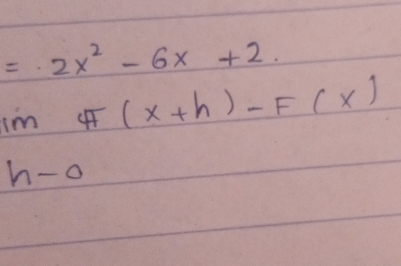 = 2x² - 6x + 2.
im F(x+h) - F(x)
h-0